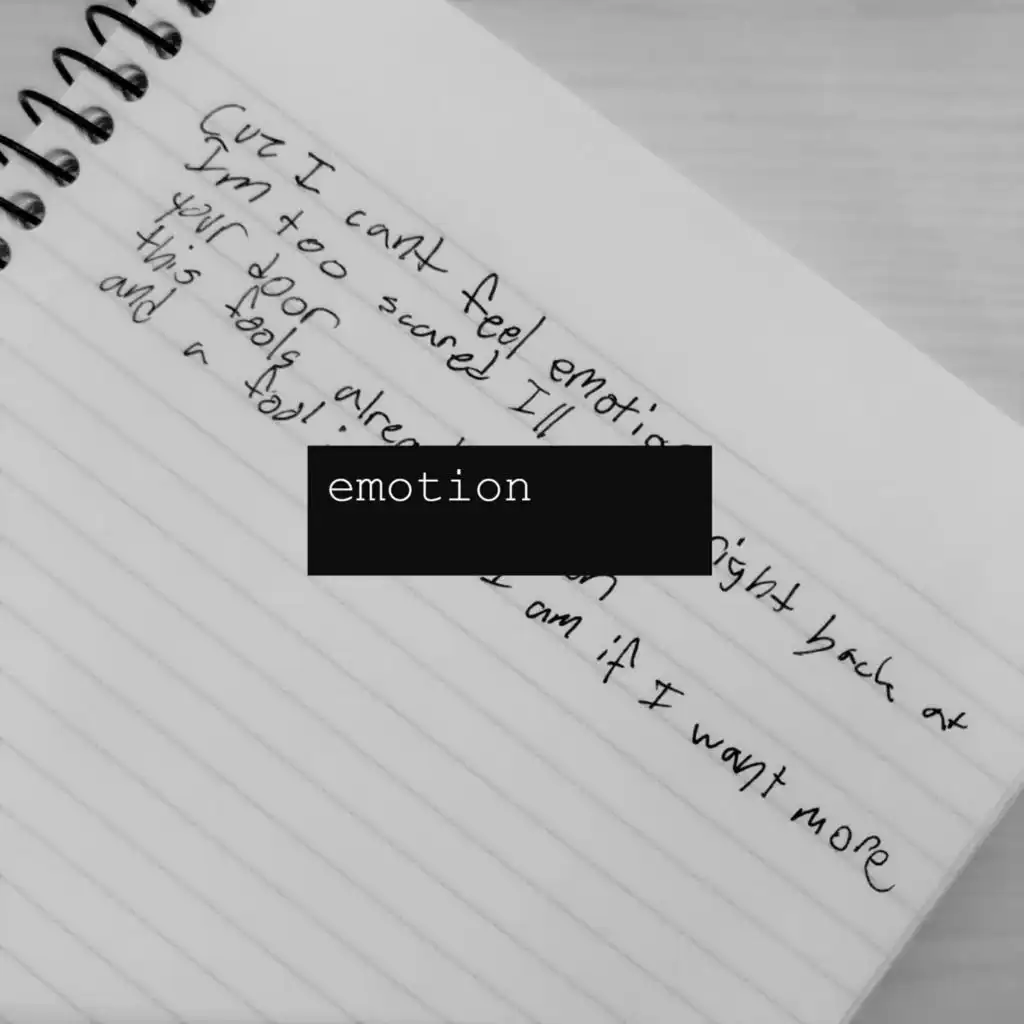 Cuz I cant feel emotion
Im too scared Ill right back at
your door
this fools alrea on
and a fool I am if I want more
emotion